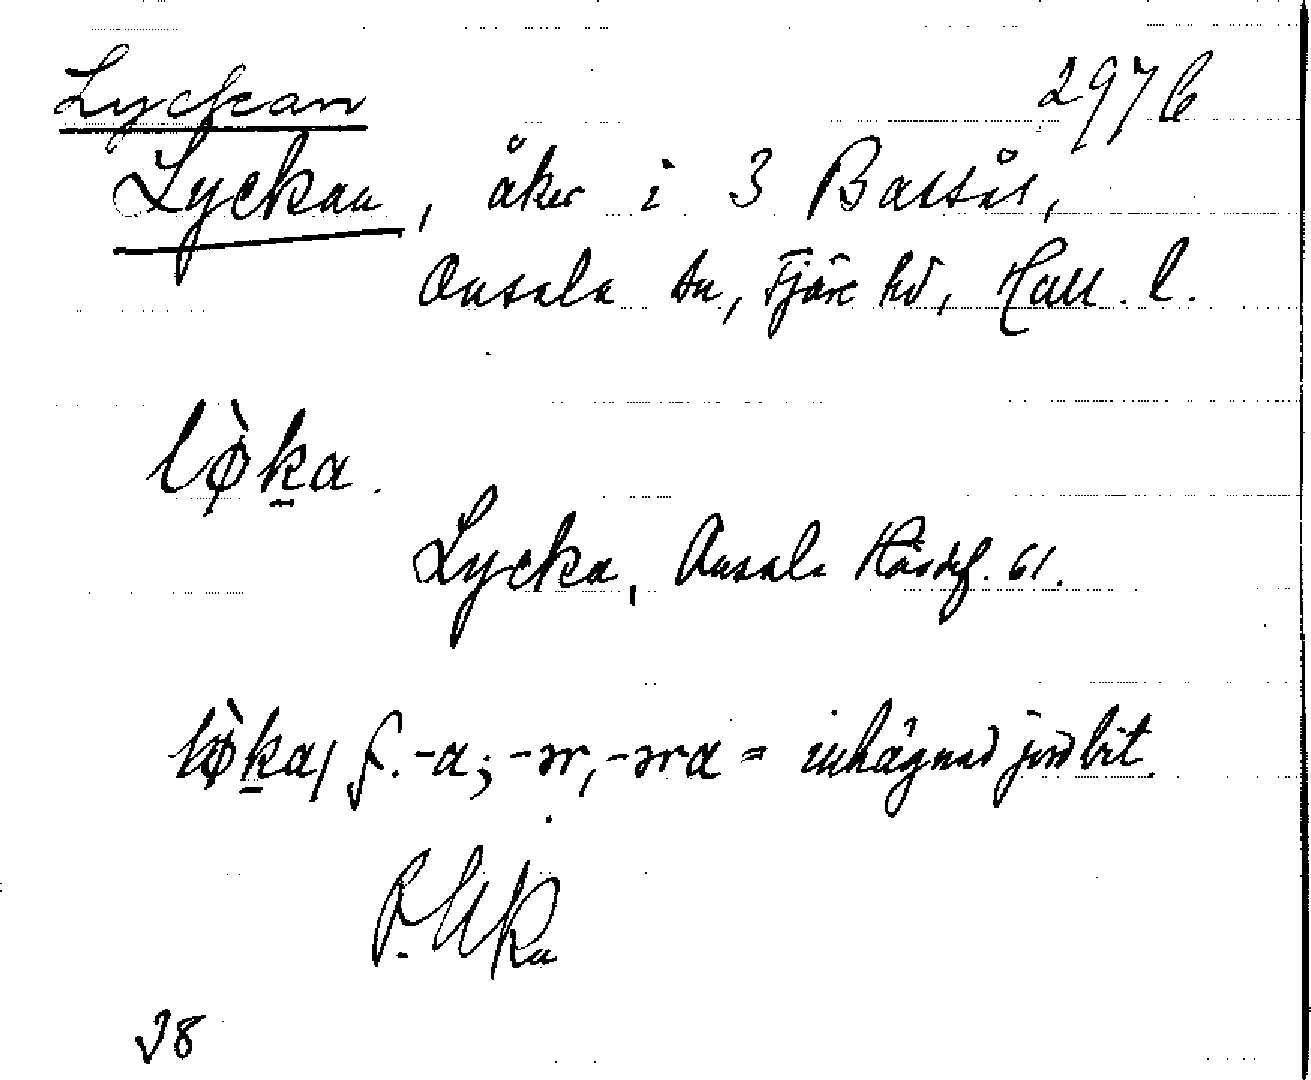 Lyckan 297 b
Lyckan, åker i 3 Bassås,
Onsala sn, Fjäre hd, Hall. l.
lø̀ḵa.
Lycka, Onsala Häradsf. 61.
lø̀ḵa, f. -a; -ər, -əra = inhägnad jordbit.
28